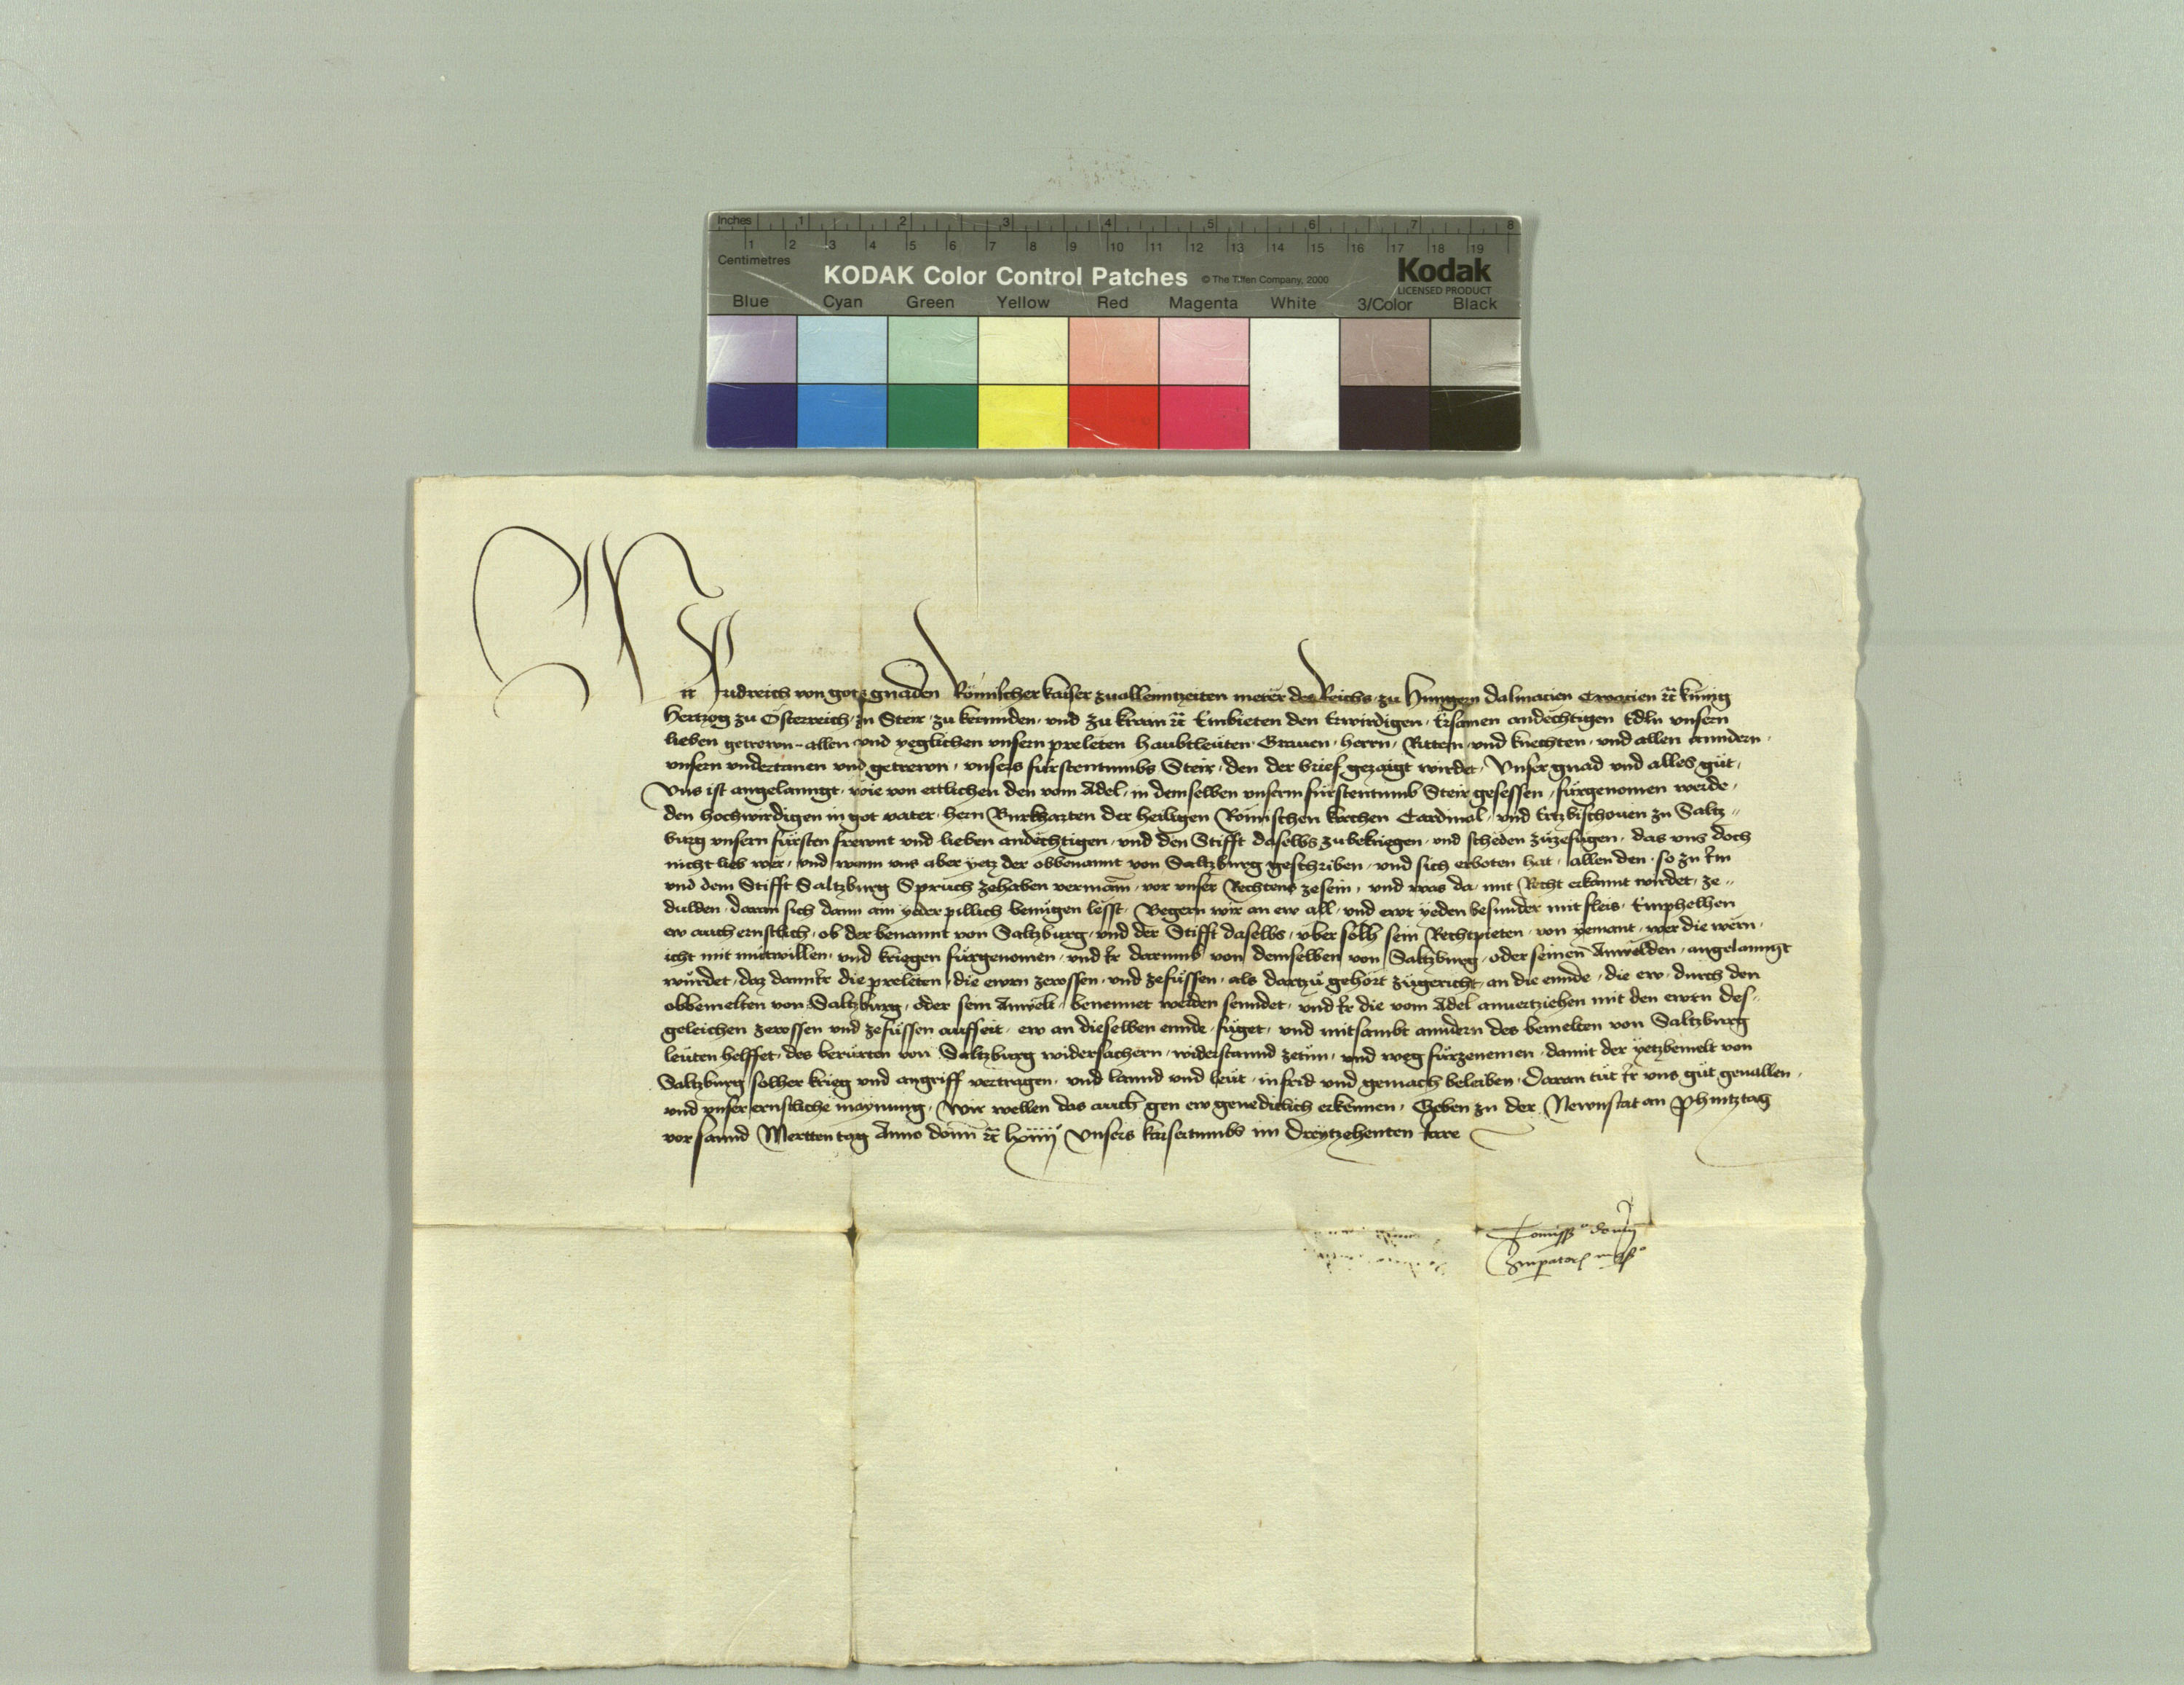 Inches 1 2 3 4 5 6 7 8
1 2 3 4 5 6 7 8 9 10 11 12 13 14 15 16 17 18 19
Centimetres
KODAK Color Control Patches © The Tiffen Company, 2000 Kodak
LICENSED PRODUCT
Blue Cyan Green Yellow Red Magenta White 3/Color Black
Wir Fridreich von gots gnaden Römischer kaiser zuallenntzeiten merer des Reichs zu Hungern Dalmacien Croacien etc kunig
Hertzog zu Österreich zu Steir zu kernnden und zu krain etc Embieten den Erwirdigen Ersamen andechtigen Edln unsern
lieben getrewn allen und yeglichen unsern preleten haubtleuten Grauen herrn Rittern und knechten und allen anndern
unsern undertanen und getrewn unsers fürstentumbs Steir den der brief gezaigt wirdet Unser gnad und alles güt
Uns ist angelanngt wie von ettlichen den vom Adel in demselben unserm fürstentumb Steir gesessen fürgenomen werde
den hochwirdigen in got vater hern Burkharten der heiligen Römischen kirchen Cardinal und Ertzbischouen zu Saltz-
burg unsern fürsten frewnt und lieben andechtigen und den Stifft daselbs zubekriegen und scheden zuzefügen das uns doch
nicht lieb wer und wann uns aber yetz der obbenannt von Saltzburg geschriben und sich erboten hat allen den so zu Im
und dem Stifft Saltzburg Spruch zehaben vermain vor unser Rechtens zesein und was da mit Recht erkannt wirdet ze-
dulden daran sich dann ain yeder pillich benügen lesst Begern wir an ew all und ewr yeden besunder mit fleis Emphelhen
ew auch ernstlich ob der benannt von Saltzburg und der Stifft daselbs über solh sein Rechtpieten von yemant wer die wern
icht mit mutwillen und kriegen fürgenomen und Ir darumb von demselben von Saltzburg oder seinen Anwelden angelanngt
würdet daz dann Ir die preleten die ewrn zerossen und zefüssen als dartzü gehört zügericht an die ennde die ew durch den
obbemelten von Saltzburg oder sein Anwelt benennet werden senndet und Ir die vom Adel anuertziehen mit den ewrn des-
geleichen zerossen und zefüssen auffseit ew an dieselben ennde füget und mitsambt anndern des bemelten von Saltzburg
leüten helffet des berürten von Saltzburg widersachern widerstannd zetün und weg fürzenemen damit der yetzbemelt von
Saltzburg solher krieg und angriff vertragen und lannd und leüt in frid und gemach beleiben Daran tüt Ir uns güt geuallen
und unser ernstliche maynung Wir wellen das auch gen ew genediclich erkennen Geben zu der Newnstat an Phintztag
vor sannd Mertten tag Anno domini etc lxiiii Unsers kaisertumbs im dreytzehenten Jare
Comissio domini
Imperatoris